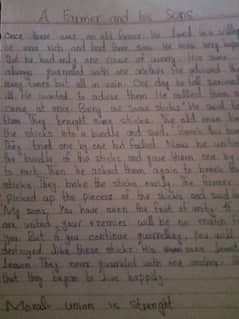 A Farmer and his Sons
Once there was an old farmer. He lived in a village
He was rich and had three sons. He was very happy
But he had only one cause of worry. His sons
always quarreled with one another. He advised them
many times but all in vain. One day he fell seriously
ill. He wanted to advise them. He called them. They
came at once. Bring me some sticks" He said to
them They brought some sticks. The old man tied
the sticks into a bundle and said, break this bundle
They tried one by one but failed. Now he untied
the bundle of the sticks and gave them one by one
to each. Then he asked them again to break the
sticks. They broke the sticks easily. The farmer
picked up the pieces of the sticks and said
My sons, You have seen the fruit of unity. If you
are united, your enemies will be no match to
you. But if you continue quarrelling, You will be
destroyed like these sticks. His sons learnt
lesson They never quarreled with one another. After
that they began to live happily
Moral: union is strenght